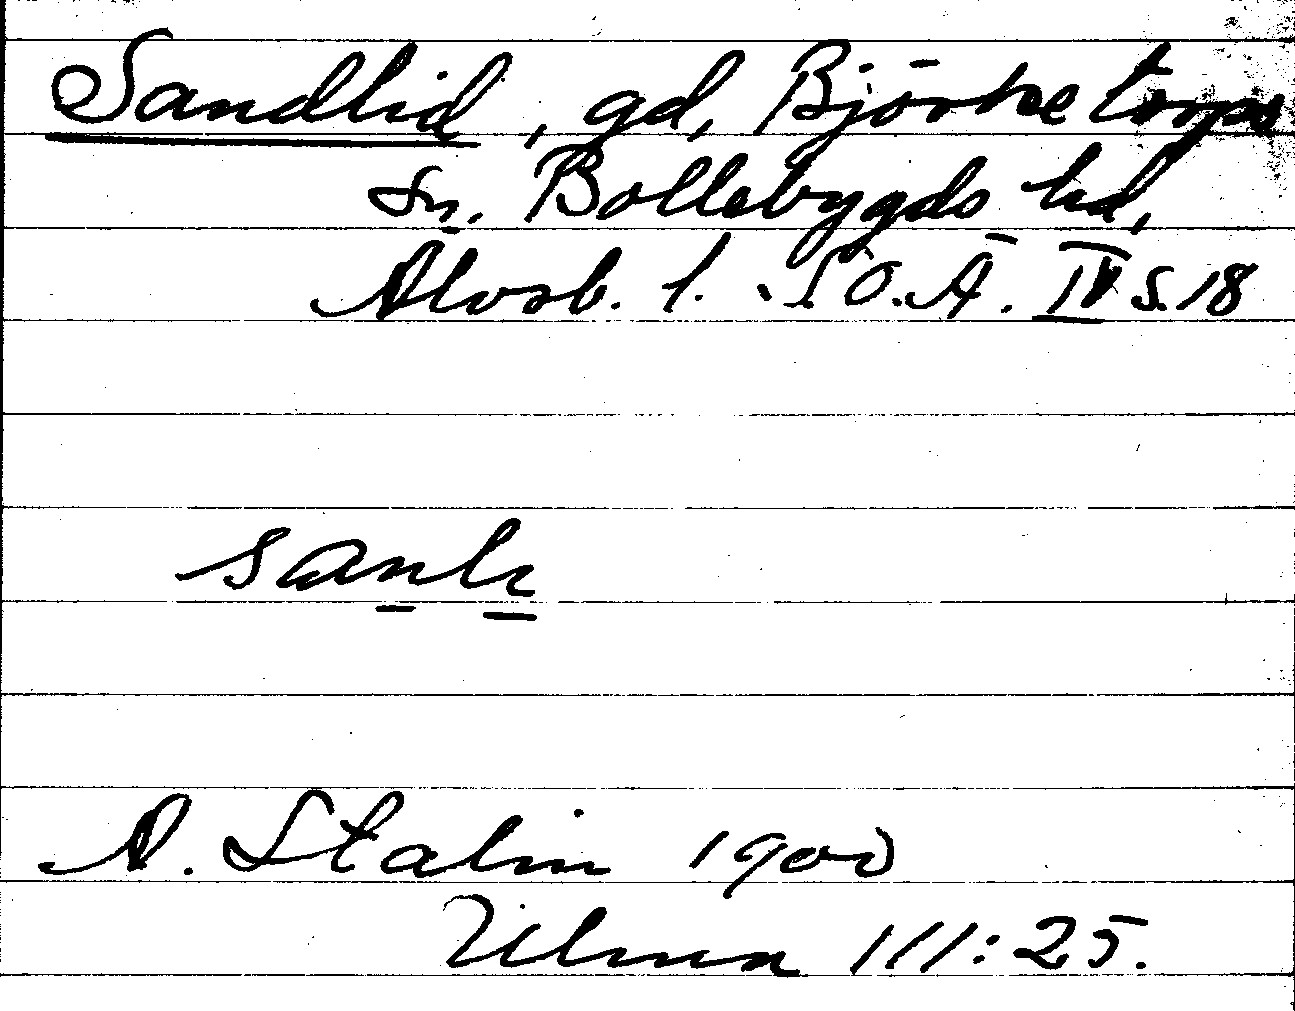 Sandlid, gd, Björketorps
sn. Bollebygds hd,
Älvsb. l. SOÄ. IV s. 18
sanlı
A. Stalin 1900
Ulma 111:25.